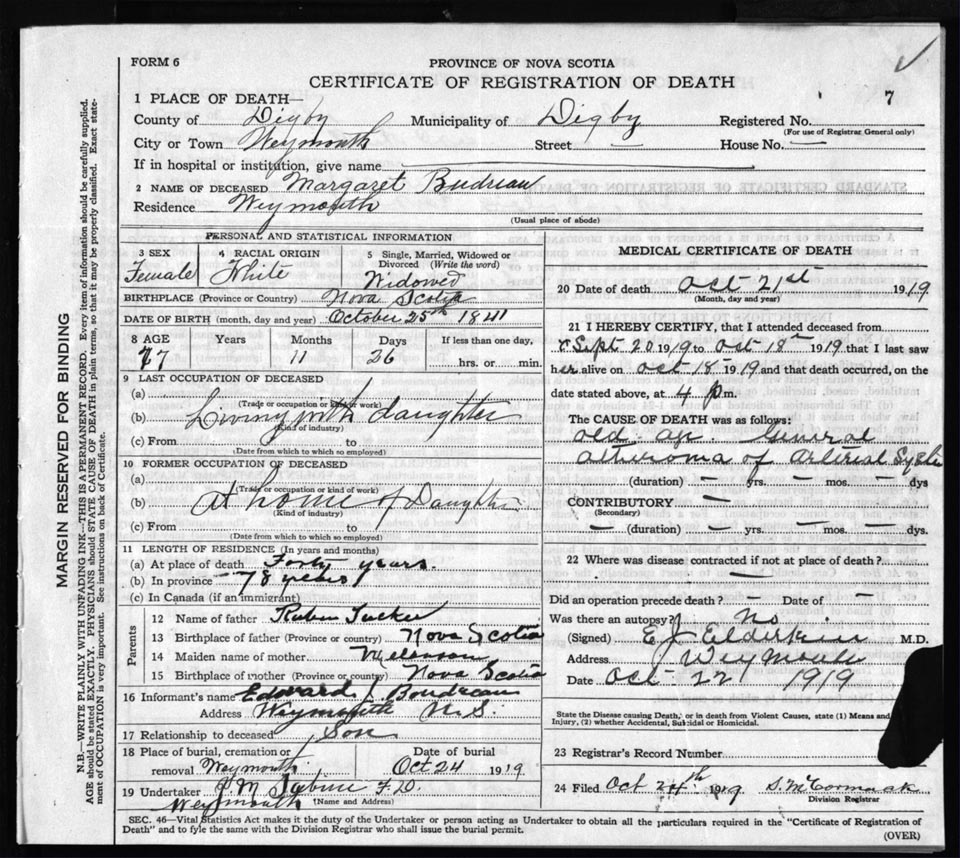 FORM 6
PROVINCE OF NOVA SCOTIA
CERTIFICATE OF REGISTRATION OF DEATH
7
1 PLACE OF DEATH—
County of Digby Municipality of Digby Registered No.
(For use of Registrar General only)
City or Town Weymouth Street — House No. —
If in hospital or institution, give name
2 NAME OF DECEASED Margaret Budreau
Residence Weymouth
(Usual place of abode)
PERSONAL AND STATISTICAL INFORMATION
3 SEX Female
4 RACIAL ORIGIN White
5 Single, Married, Widowed or Divorced (Write the word)
Widowed
BIRTHPLACE (Province or Country) Nova Scotia
DATE OF BIRTH (month, day and year) October 25th 1841
8 AGE Years Months Days If less than one day,
77 11 26 hrs. or min.
9 LAST OCCUPATION OF DECEASED
(a)
(Trade or occupation or kind of work)
(b) Living with daughter
(Kind of industry)
(c) From to
(Date from which to which so employed)
10 FORMER OCCUPATION OF DECEASED
(a)
(Trade or occupation or kind of work)
(b) At home of Daughter
(Kind of industry)
(c) From to
(Date from which to which so employed)
11 LENGTH OF RESIDENCE (In years and months)
(a) At place of death Forty years.
(b) In province 78 years
(c) In Canada (if an immigrant)
Parents
12 Name of father Ruben Tucker
13 Birthplace of father (Province or country) Nova Scotia
14 Maiden name of mother
15 Birthplace of mother (Province or country) Nova Scotia
16 Informant's name Edward J Boudreau
Address Weymouth N.S.
17 Relationship to deceased Son
18 Place of burial, cremation or removal Weymouth
Date of burial Oct 24 1919
19 Undertaker F.D.
Weymouth (Name and Address)
MEDICAL CERTIFICATE OF DEATH
20 Date of death Oct 21st 1919
(Month, day and year)
21 I HEREBY CERTIFY, that I attended deceased from
Sept 20 1919 to Oct 18th 1919 that I last saw
her alive on Oct 18 1919 and that death occurred, on the
date stated above, at 4 p m.
The CAUSE OF DEATH was as follows:
old age General
atheroma of arterial System
(duration) — yrs. — mos. — dys
CONTRIBUTORY —
(Secondary)
— (duration) — yrs. — mos. — dys.
22 Where was disease contracted if not at place of death?
—
Did an operation precede death? — Date of —
Was there an autopsy? No
(Signed) E J Elderkin M.D.
Address Weymouth
Date Oct 22 1919
State the Disease causing Death, or in death from Violent Causes, state (1) Means and
Injury, (2) whether Accidental, Suicidal or Homicidal.
23 Registrar's Record Number
24 Filed Oct 24th 1919 S. McCormack
Division Registrar
SEC. 46—Vital Statistics Act makes it the duty of the Undertaker or person acting as Undertaker to obtain all the particulars required in the "Certificate of Registration of
Death" and to fyle the same with the Division Registrar who shall issue the burial permit.
(OVER)
MARGIN RESERVED FOR BINDING
N.B.—WRITE PLAINLY WITH UNFADING INK—THIS IS A PERMANENT RECORD. Every item of information should be carefully supplied.
AGE should be stated EXACTLY. PHYSICIANS should STATE CAUSE OF DEATH in plain terms, so that it may be properly classified. Exact state-
ment of OCCUPATION is very important. See instructions on back of Certificate.